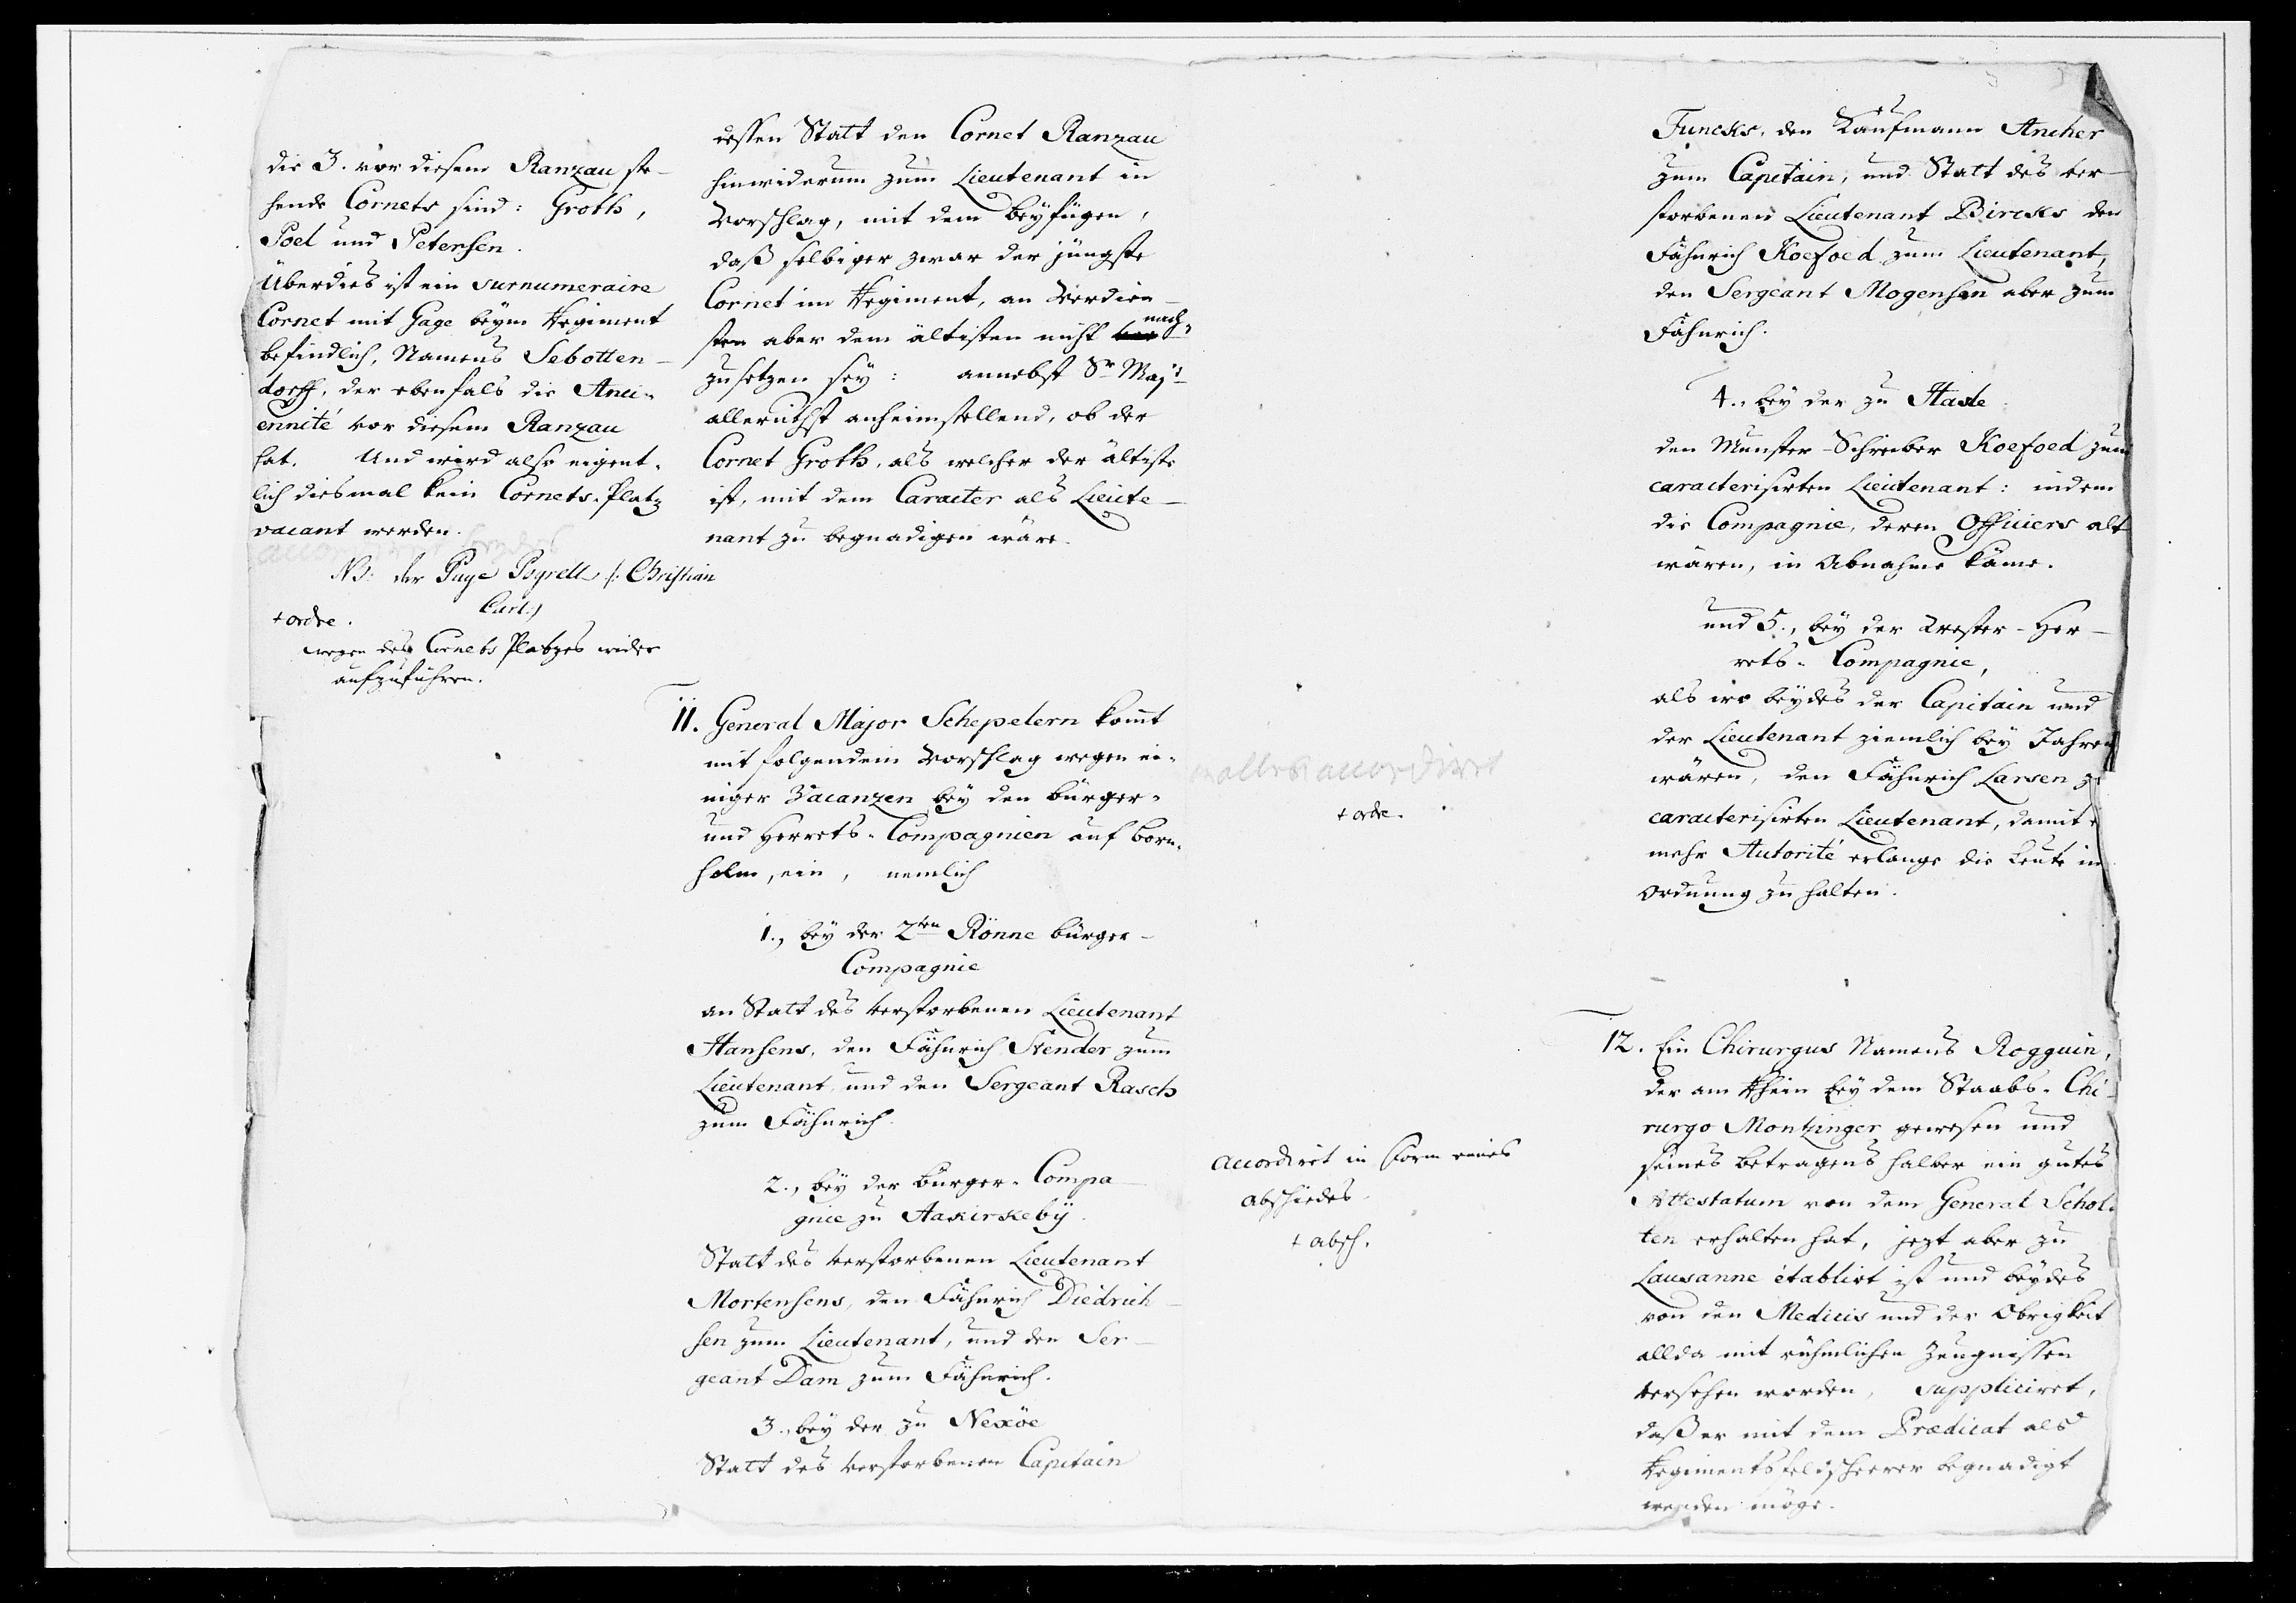 die 3. vor diesem Ranzau ste-
hende Cornets sind: Groth,
Poel und Petersen.
Überdies ist ein surnumeraire
Cornet mit Gage beym Regiment
befindlich, Namens Sebotten-
dorff, der ebenfals die Anci-
ennité vor diesem Ranzau
hat. Und wird also eigent-
lich diesmal kein Cornets-Platz
vacant werden.
accordiret beydes
NB: der Page Pogrell /: Christian
Carl:/
+ ordre.
wegen des Cornets Platzes wider
aufzuführen.
dessen Statt den Cornet Ranzau
hinwiderum zum Lieutenant in
Vorschlag, mit dem beyfügen,
daß selbiger zwar der jüngste
Cornet im Regiment, an Verdien-
sten aber dem ältisten nicht nach-
zusetzen sey: annebst Sr Majt
allerunthst anheimstellend, ob der
Cornet Groth, als welcher der ältiste
ist, mit dem Caracter als Lieute-
nant zu begnadigen wäre.
11. General Major Schepelern komt
mit folgendem Vorschlag wegen ei-
niger Vacanzen bey den bürger-
und Herrets-Compagnien auf born-
holm, ein, nemlich
1., bey der 2ten Rönne bürger-
Compagnie
an Statt des verstorbenen Lieutenant
Hansens, den Fähnrich Stender zum
Lieutenant und den Sergeant Rasch
zum Fähnrich.
2., bey der bürger-Compa-
gnie zu Aakirkebÿ.
Statt des verstorbenen Lieutenant
Mortensens, den Fähnrich Diedrich-
sen zum Lieutenant, und den Ser-
geant Dam zum Fähnrich.
3., bey der zu Nexöe
Statt des verstorbenen Capitain
alles accordiret
+ ordre.
accordiret in Form eines
abschiedes.
+ absch.
Funcks, den Kaufmann Ancher
zum Capitain, und Statt des ver-
storbenen Lieutenant Bircks den
Fähnrich Koefoed zum Lieutenant,
den Sergeant Mogensen aber zum
Fähnrich.
4., bey der zu Hasle.
den Munster-Schreiber Koefoed zum
caracterisirten Lieutenant: indem
die Compagnie, deren Officiers alt
wären, in Abnahme käme.
und 5., bey der Vester-Her-
rets-Compagnie,
als wo beydes der Capitain und
der Lieutenant ziemlich bey Jahren
wären, den Fähnrich Larsen z
caracterisirten Lieutenant, damit
mehr Autorité erlange die Leute in
Ordnung zu halten.
12. Ein Chirurgus Namens Rogguin,
der am Rhein bey dem Staabs-Chi-
rurgo Montzinger gewesen und
seines betragens halber ein gutes
Attestatum von dem General Schol-
ten erhalten hat, jezt aber zu
Lausanne établirt ist und beydes
von den Medicis und der Obrigkeit
allda mit rühmlichen Zeugnissen
versehen worden, suppliciret,
daß er mit dem Prædicat als
Regimentsfeldscheerer begnadigt
werden möge.